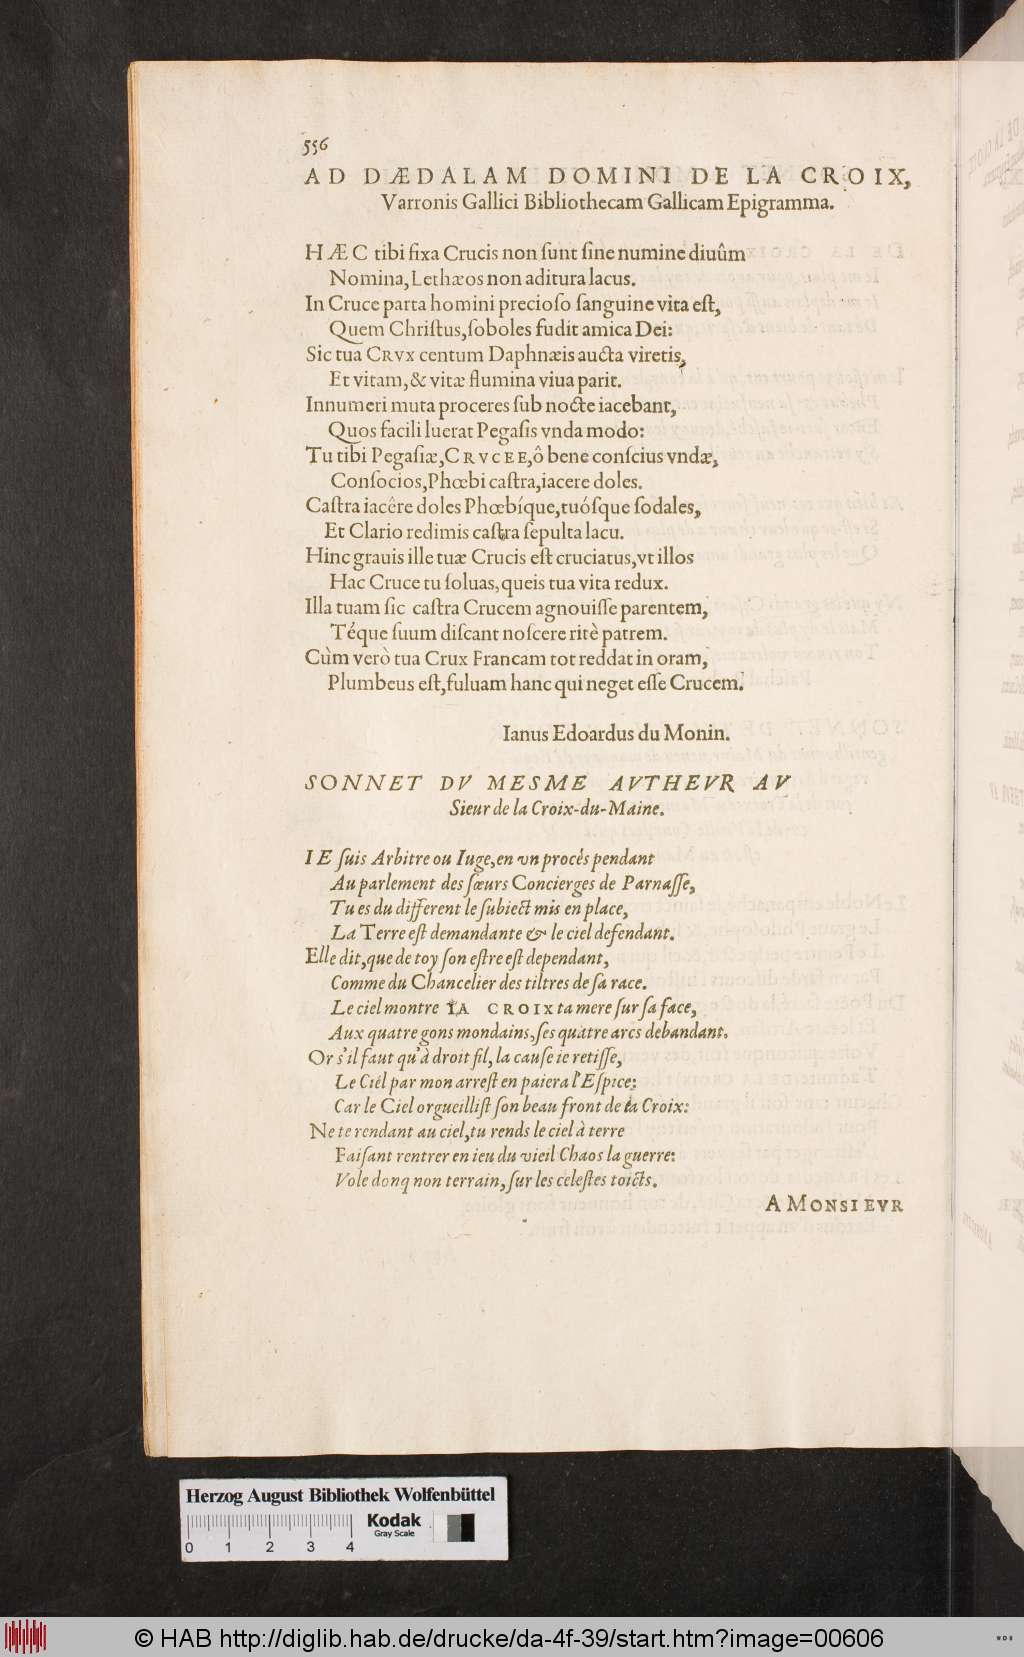 556
AD DÆDALAM DOMINI DE LA CROIX,
Varronis Gallici Bibliothecam Gallicam Epigramma.
HÆC tibi fixa Crucis non ſunt ſine numine diuûm
Nomina, Lethæos non aditura lacus.
In Cruce parta homini precioſo ſanguine vita eſt,
Quem Chriſtus, ſoboles fudit amica Dei:
Sic tua CRVX centum Daphnæis aucta viretis,
Et vitam, & vitæ flumina viua parit.
Innumeri muta proceres ſub nocte iacebant,
Quos facili luerat Pegaſis vnda modo:
Tu tibi Pegaſiæ, CRVCEE, ô bene conſcius vndæ,
Conſocios, Phœbi caſtra, iacere doles.
Caſtra iacêre doles Phœbíque, tuóſque ſodales,
Et Clario redimis caſtra ſepulta lacu.
Hinc grauis ille tuæ Crucis eſt cruciatus, vt illos
Hac Cruce tu ſoluas, queis tua vita redux.
Illa tuam ſic caſtra Crucem agnouiſſe parentem,
Téque ſuum diſcant noſcere ritè patrem.
Cùm verò tua Crux Francam tot reddat in oram,
Plumbeus eſt, fuluam hanc qui neget eſſe Crucem.
Ianus Edoardus du Monin.
SONNET DV MESME AVTHEVR AV
Sieur de la Croix-du-Maine.
IE ſuis Arbitre ou Iuge, en vn procés pendant
Au parlement des ſœurs Concierges de Parnaſſe,
Tu es du different le ſubiect mis en place,
La Terre eſt demandante & le ciel defendant.
Elle dit, que de toy ſon eſtre eſt dependant,
Comme du Chancelier des tiltres de ſa race.
Le ciel montre LA CROIX ta mere ſur ſa face,
Aux quatre gons mondains, ſes quatre arcs debandant.
Or s'il faut qu'à droit fil, la cauſe ie retiſſe,
Le Ciel par mon arreſt en paiera l'Eſpice:
Car le Ciel orgueilliſt ſon beau front de la Croix:
Ne te rendant au ciel, tu rends le ciel à terre
Faiſant rentrer en ieu du vieil Chaos la guerre:
Vole donq non terrain, ſur les celeſtes toicts.
A MONSIEVR
Herzog August Bibliothek Wolfenbüttel
Kodak
Gray Scale
0 1 2 3 4
© HAB http://diglib.hab.de/drucke/da-4f-39/start.htm?image=00606